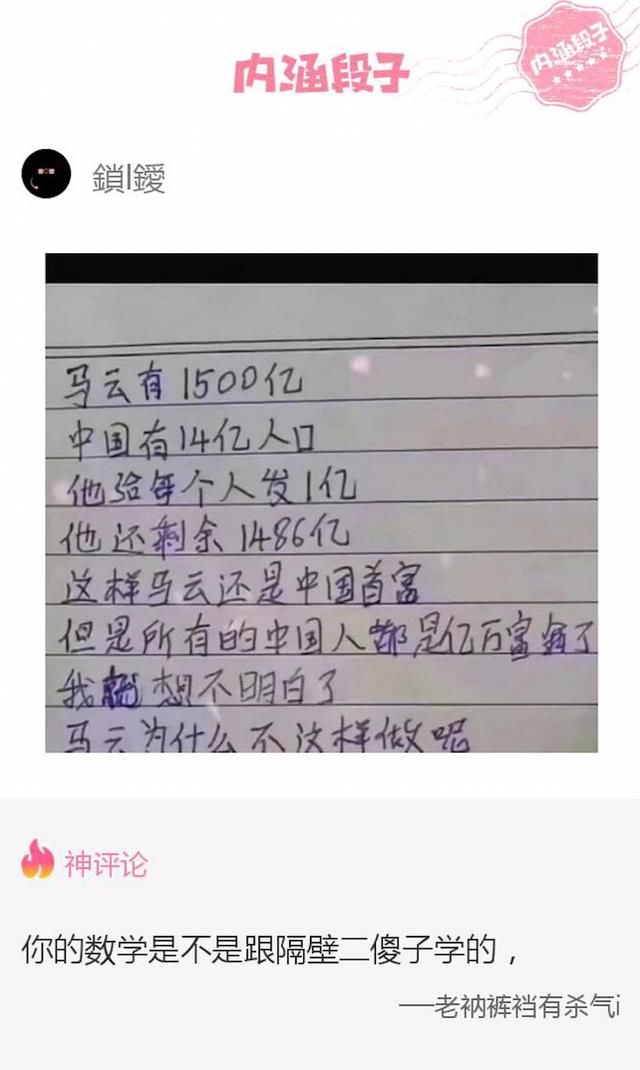 内涵段子
内涵段子
鎖l鑀
马云有1500亿
中国有14亿人口
他给每个人发1亿
他还剩余1486亿
这样马云还是中国首富
但是所有的中国人都是亿万富翁了
我就想不明白了
马云为什么不这样做呢
神评论
你的数学是不是跟隔壁二傻子学的，
──老衲裤裆有杀气i